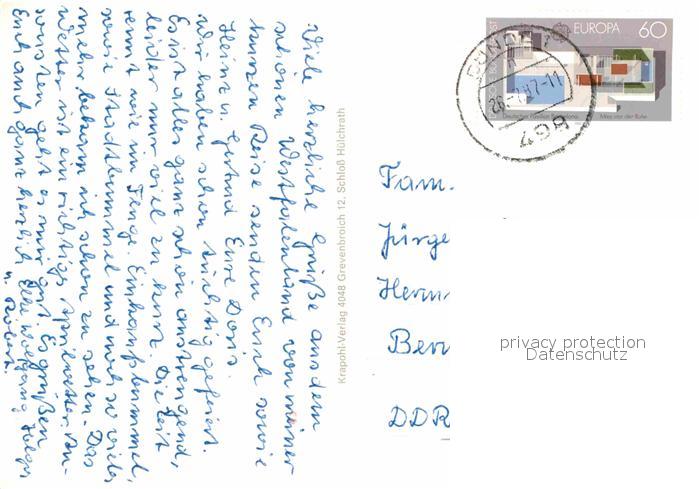 Viele herzliche Grüße aus dem
schönen Westfalenland von meiner
kurzen Reise senden Euch sowie
Heinz u. Gertrud Eure Doris.
Wir haben schon tüchtig gefeiert.
Es ist alles ganz schön anstrengend,
leider nur viel zu kurz. Die Zeit
rennt wie im Fluge. Einkaufsbummel,
sowie Stadtbummel und noch so vieles
mehr bekam ich schon zu sehen. Das
Wetter ist ein richtiges Aprilwetter. An-
sonsten geht es mir gut. Es grüßen
Euch auch ganz herzlich Elli Wolfgang
u. Robert.
Krapohl-Verlag 4048 Grevenbroich 12, Schloß Hülchrath
EUROPA 60
Deutscher Pavillon Barcelona Mies van der Rohe
Fam.
Jürge
Herm
Ber
DDR
privacy protection
Datenschutz